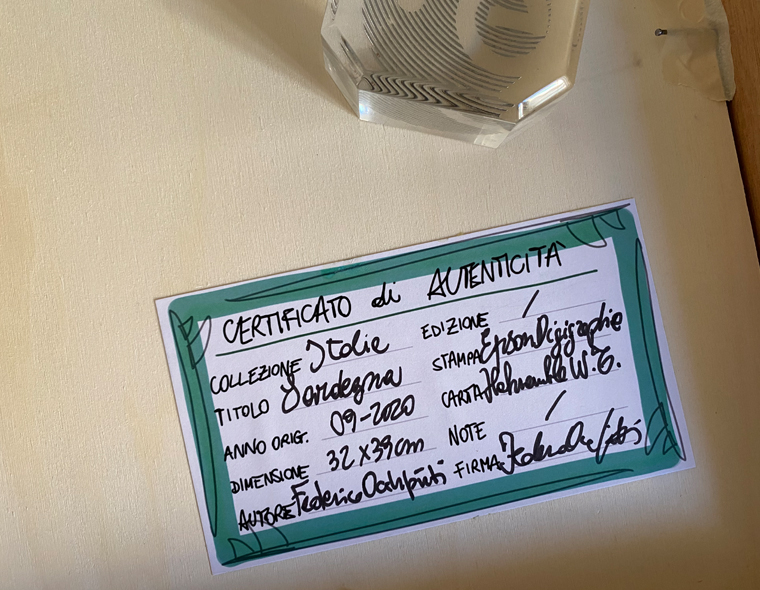 CERTIFICATO di AUTENTICITÀ
COLLEZIONE Italia
TITOLO Sardegna
ANNO ORIG. 09-2020
DIMENSIONE 32 x 39 cm
AUTORE Federico
EDIZIONE /
STAMPA Epson Digigraphie
CARTA Hahnemühle W.T.
NOTE /
FIRMA